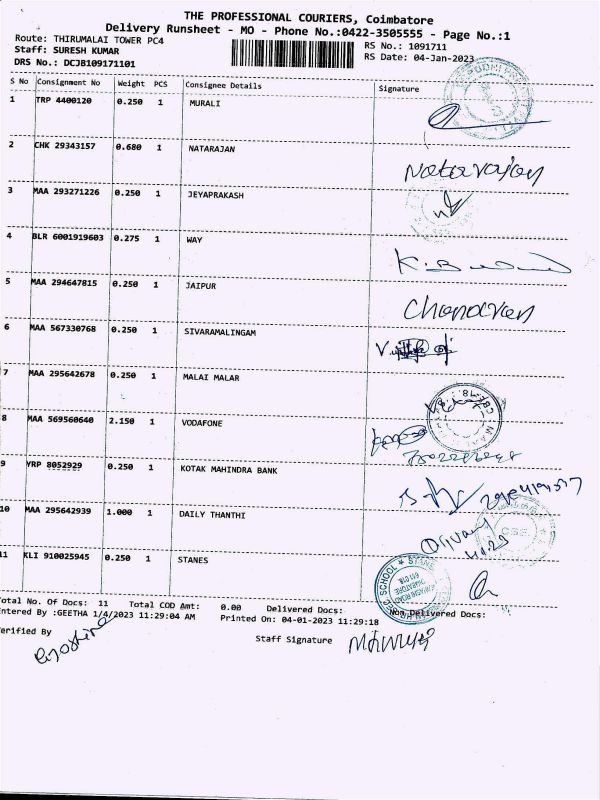 THE PROFESSIONAL COURIERS, Coimbatore
Delivery Runsheet - MO - Phone No.:0422-3505555 - Page No.:1
Route: THIRUMALAI TOWER PC4
RS No.: 1091711
Staff: SURESH KUMAR
RS Date: 04-Jan-2023
DRS No.: DCJB109171101
S No Consignment No Weight PCS Consignee Details Signature
1 TRP 4400120 0.250 1 MURALI
2 CHK 29343157 0.680 1 NATARAJAN Natarajan
3 MAA 293271226 0.250 1 JEYAPRAKASH
4 BLR 6001919603 0.275 1 WAY
5 MAA 294647815 0.250 1 JAIPUR
6 MAA 567330768 0.250 1 SIVARAMALINGAM
7 MAA 295642678 0.250 1 MALAI MALAR
8 MAA 569560640 2.150 1 VODAFONE
9 YRP 8052929 0.250 1 KOTAK MAHINDRA BANK
10 MAA 295642939 1.000 1 DAILY THANTHI
11 KLI 910025945 0.250 1 STANES
Total No. Of Docs: 11 Total COD Amt: 0.00 Delivered Docs: Non Delivered Docs:
Entered By :GEETHA 1/4/2023 11:29:04 AM Printed On: 04-01-2023 11:29:18
Verified By Staff Signature